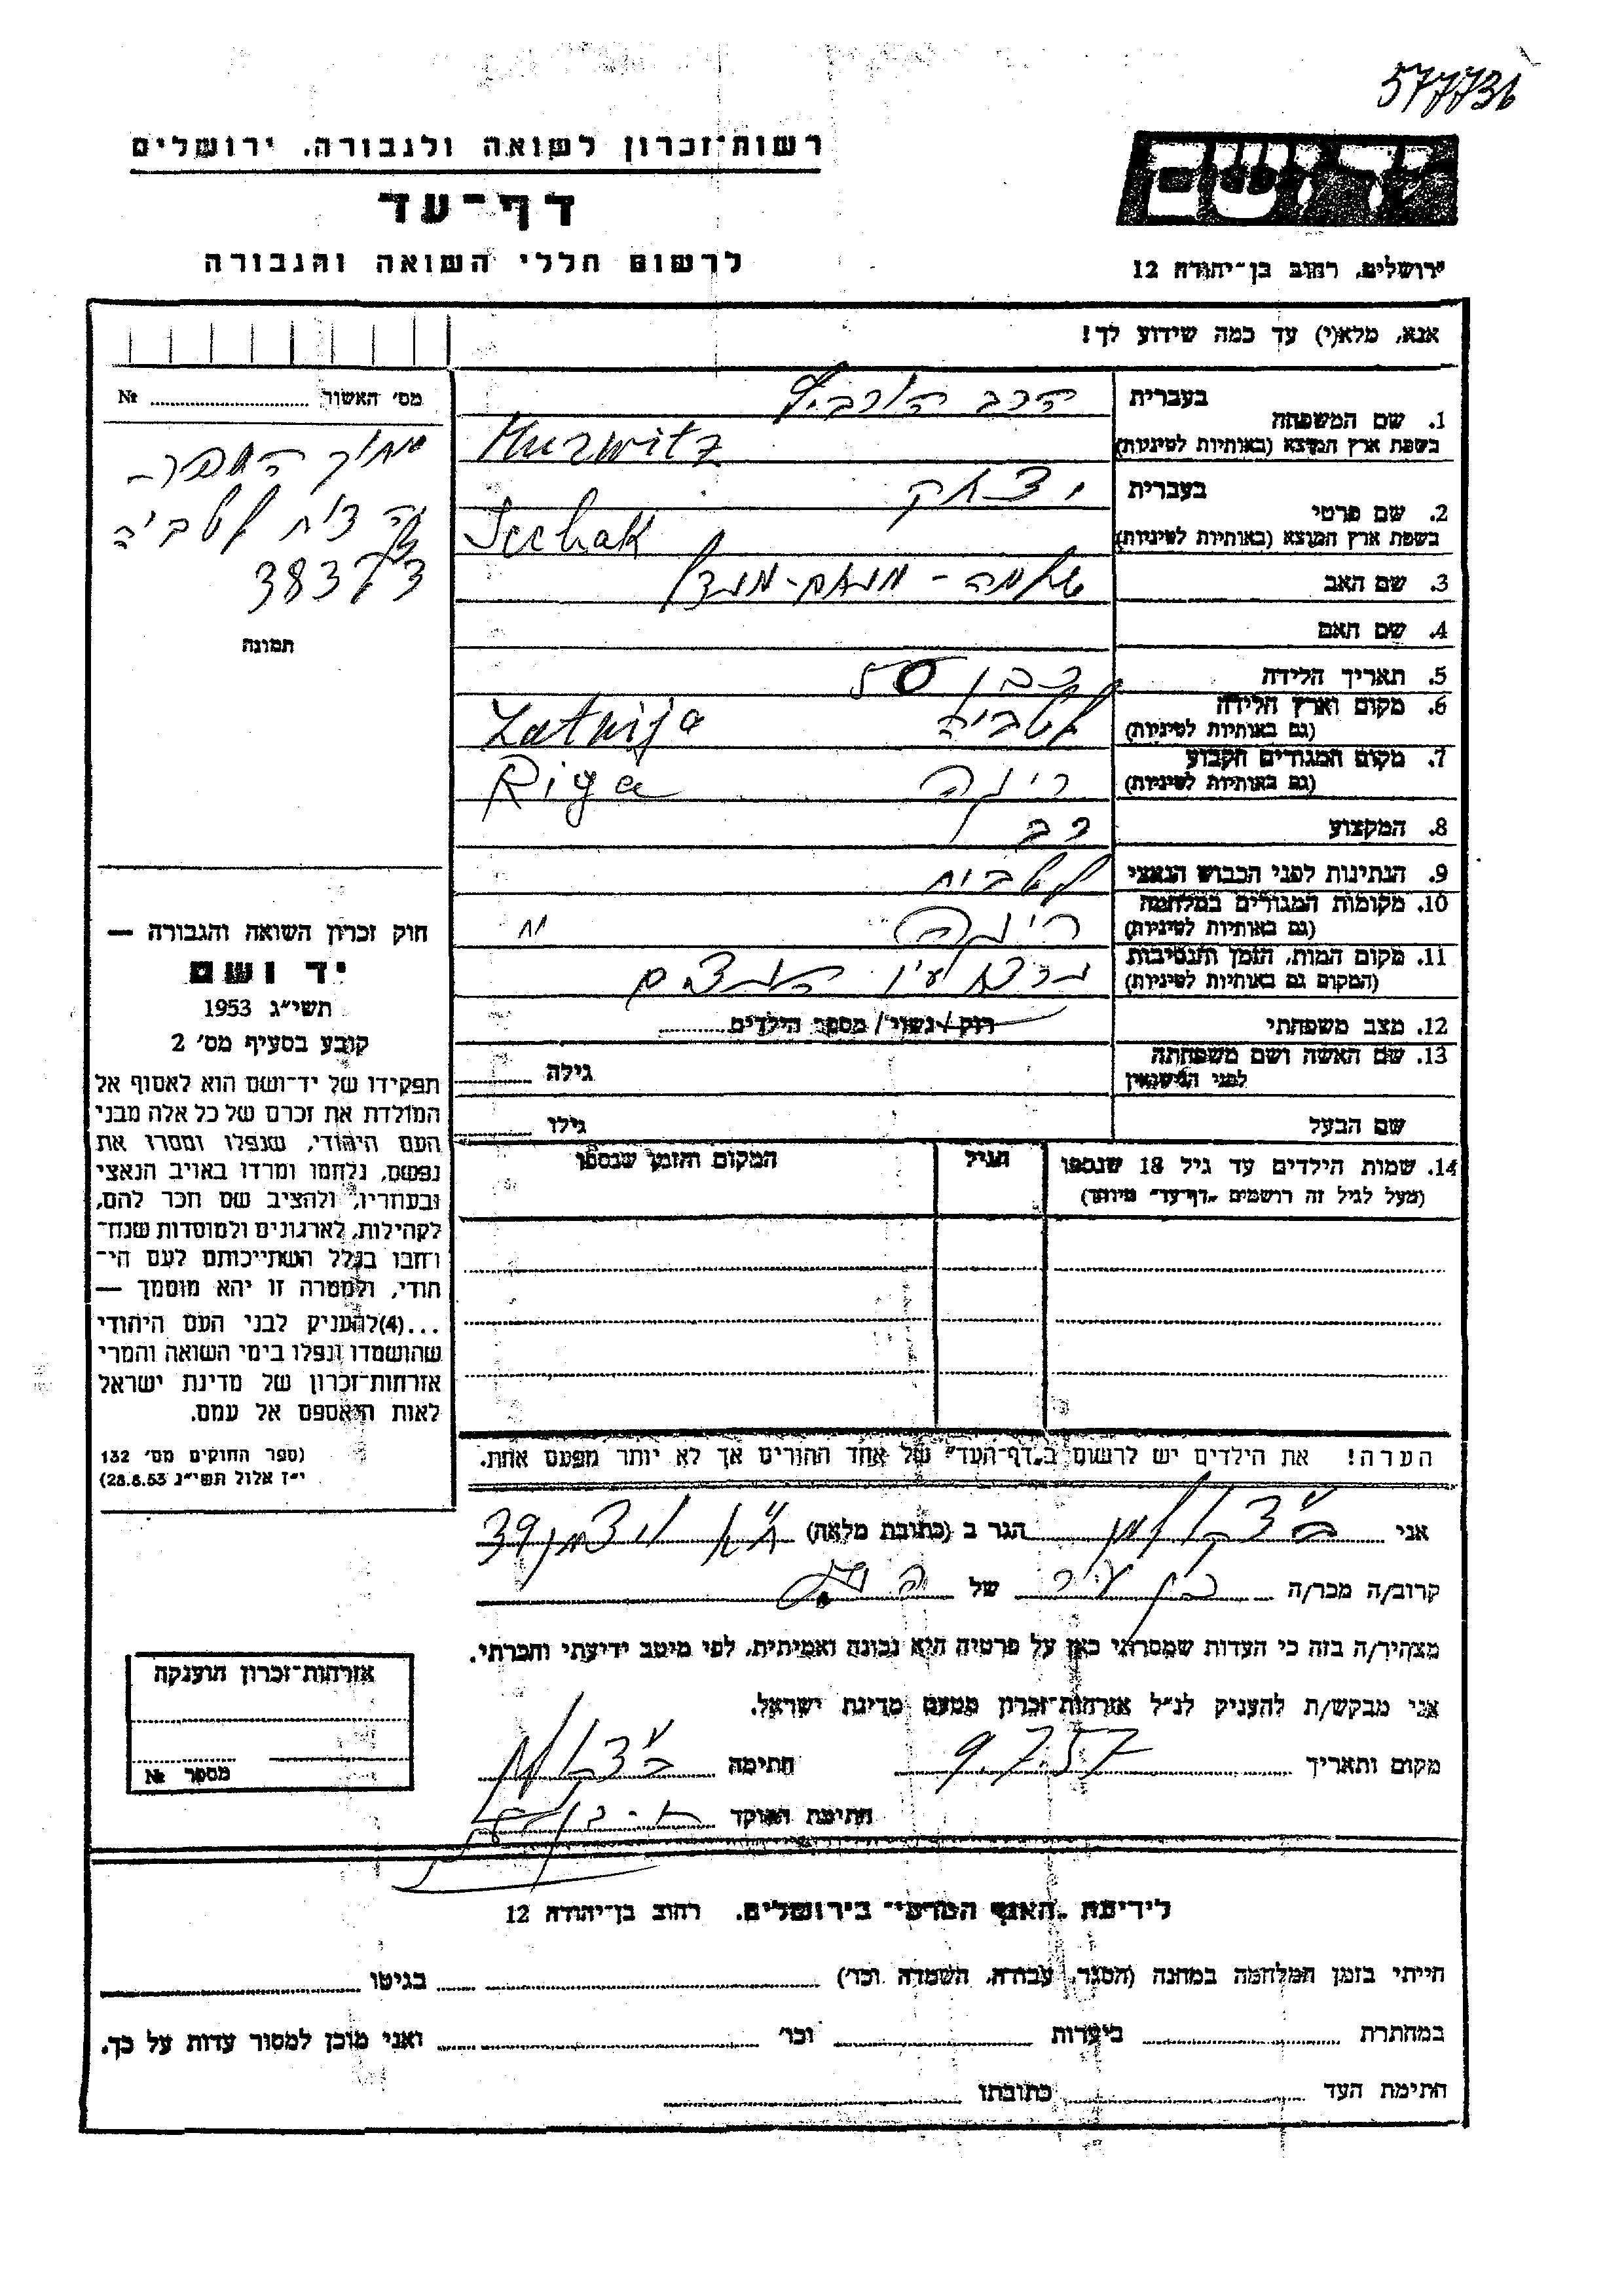 577736
רשות־זכרון לשואה ולגבורה. ירושלים
דף־עד
לרשום חללי השואה והגבורה
ירושלים. רחוב בן־יהודה 12
אנא. מלא(י) עד כמה שידוע לך!
1. שם המשפחה
בעברית
הרב הורביץ
בשפת ארץ המוצא (באותיות לטיניות)
Hurwitz
2. שם פרטי
בעברית
יצחק
בשפת ארץ המוצא (באותיות לטיניות)
Icchak
3. שם האב
שלמה - מנחם-מנדל
4. שם האם
5. תאריך הלידה
כבן 50
6. מקום וארץ הלידה
(גם באותיות לטיניות)
לטביה Latwija
7. מקום המגורים הקבוע
(גם באותיות לטיניות)
ריגה Riga
8. המקצוע
רב
9. הנתינות לפני הכבוש הנאצי
לטבית
10. מקומות המגורים במלחמה
(גם באותיות לטיניות)
ריגה "
11. מקום המות. הזמן והנסיבות
(המקום גם באותיות לטיניות)
נרצח ע"י הנאצים
12. מצב משפחתי
רוק / נשוי / מספר הילדים
13. שם האשה ושם משפחתה
לפני הנישואין
גילה
שם הבעל
גילו
14. שמות הילדים עד גיל 18 שנספו
(מעל לגיל זה רושמים „דף־עד" מיוחד)
הגיל
המקום והזמן שנספו
הערה! את הילדים יש לרשום ב„דף־העד" של אחד ההורים אך לא יותר מפעם אחת.
מס' האשור № 
מתוך הספר -
לטביה
383
תמונה
חוק זכרון השואה והגבורה —
יד ושם
תשי"ג 1953
קובע בסעיף מס' 2
תפקידו של יד־ושם הוא לאסוף אל
המולדת את זכרם של כל אלה מבני
העם היהודי, שנפלו ומסרו את
נפשם, נלחמו ומרדו באויב הנאצי
ובעוזריו, ולהציב שם וזכר להם,
לקהילות, לארגונים ולמוסדות שנח־
רחבו בגלל השתייכותם לעם הי־
הודי, ולמטרה זו יהא מוסמך —
...(4)להעניק לבני העם היהודי
שהושמדו ונפלו בימי השואה והמרי
אזרחות־זכרון של מדינת ישראל
לאות היאספם אל עמם.
(ספר החוקים מס' 132
י"ז אלול תשי"ג 28.8.53)
אני הגר ב (כתובת מלאה) ת"א 39
קרוב/ה מכר/ה בן עיר של
מצהיר/ה בזה כי העדות שמסרתי כאן על פרטיה היא נכונה ואמיתית, לפי מיטב ידיעתי והכרתי.
אני מבקש/ת להעניק לנ"ל אזרחות־זכרון מטעם מדינת ישראל.
מקום ותאריך 9.7.57 חתימה
חתימת הפוקד
אזרחות־זכרון הוענקה
מספר №
לידיעת „האגף המדעי" בירושלים. רחוב בן־יהודה 12
הייתי בזמן המלחמה במחנה (הסגר, עבודה, השמדה וכו') בגיטו
במחתרת ביערות וכו' ואני מוכן למסור עדות על כך.
חתימת העד כתובתו